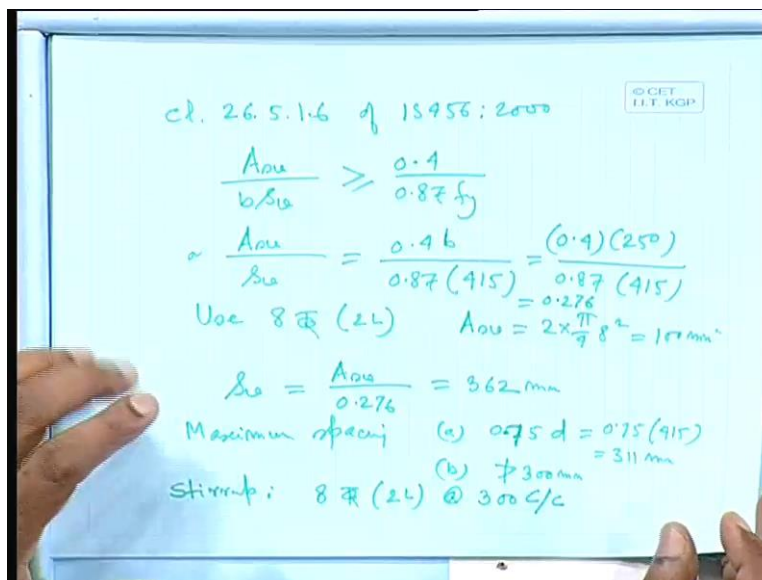 © CET
I.I.T. KGP
cl. 26.5.1.6 of IS456:2000
Asv / bSv ≥ 0.4 / 0.87 fy
or Asv / Sv = 0.4 b / 0.87 (415) = (0.4)(250) / 0.87 (415)
= 0.276
Use 8 Φ (2L) Asv = 2 × π/4 8² = 100 mm²
Sv = Asv / 0.276 = 362 mm
Maximum spacing (a) 0.75 d = 0.75 (415)
= 311 mm
(b) ≯ 300 mm
Stirrup: 8 Φ (2L) @ 300 c/c